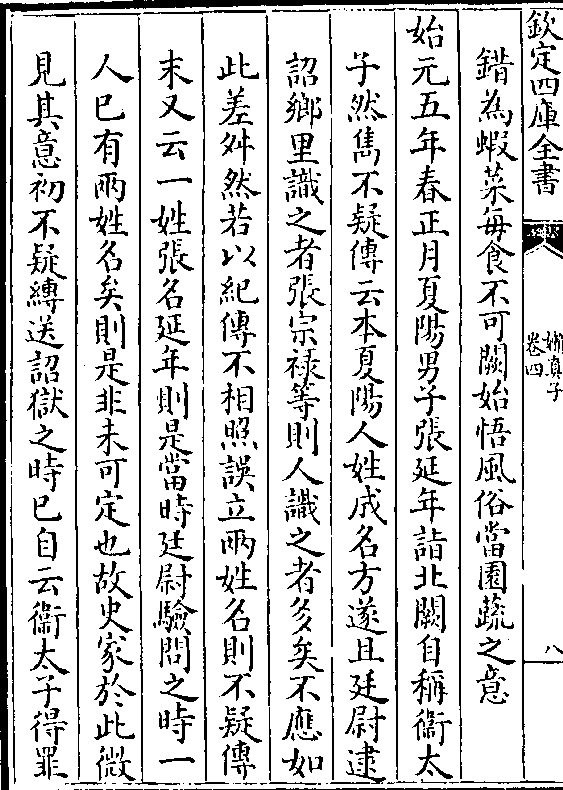 欽定四庫全書
嬾真子
卷四
八
錯為蝦菜每食不可闕始悟風俗當園蔬之意
始元五年春正月夏陽男子張延年詣北闕自稱衞太
子然雋不疑傳云本夏陽人姓成名方遂且廷尉逮
詔鄉里識之者張宗禄等則人識之者多矣不應如
此差舛然若以紀傳不相照誤立兩姓名則不疑傳
末又云一姓張名延年則是當時廷尉驗問之時一
人已有兩姓名矣則是非未可定也故史家於此微
見其意初不疑縛送詔獄之時已自云衞太子得罪